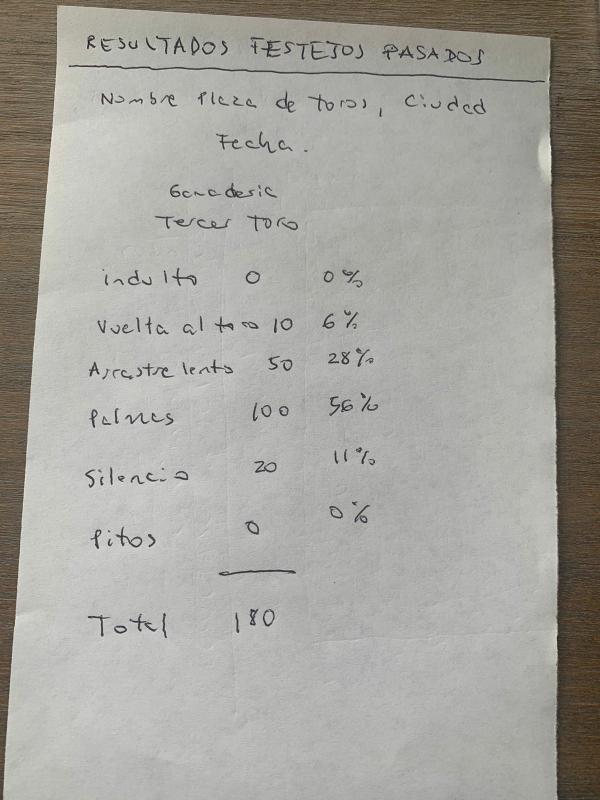 RESULTADOS FESTEJOS PASADOS
Nombre Plaza de toros, Ciudad
Fecha.
Ganaderia
Tercer Toro
indulto 0 0%
Vuelta al toro 10 6%
Arrastre lento 50 28%
Palmas 100 56%
Silencio 20 11%
Pitos 0 0%
Total 180